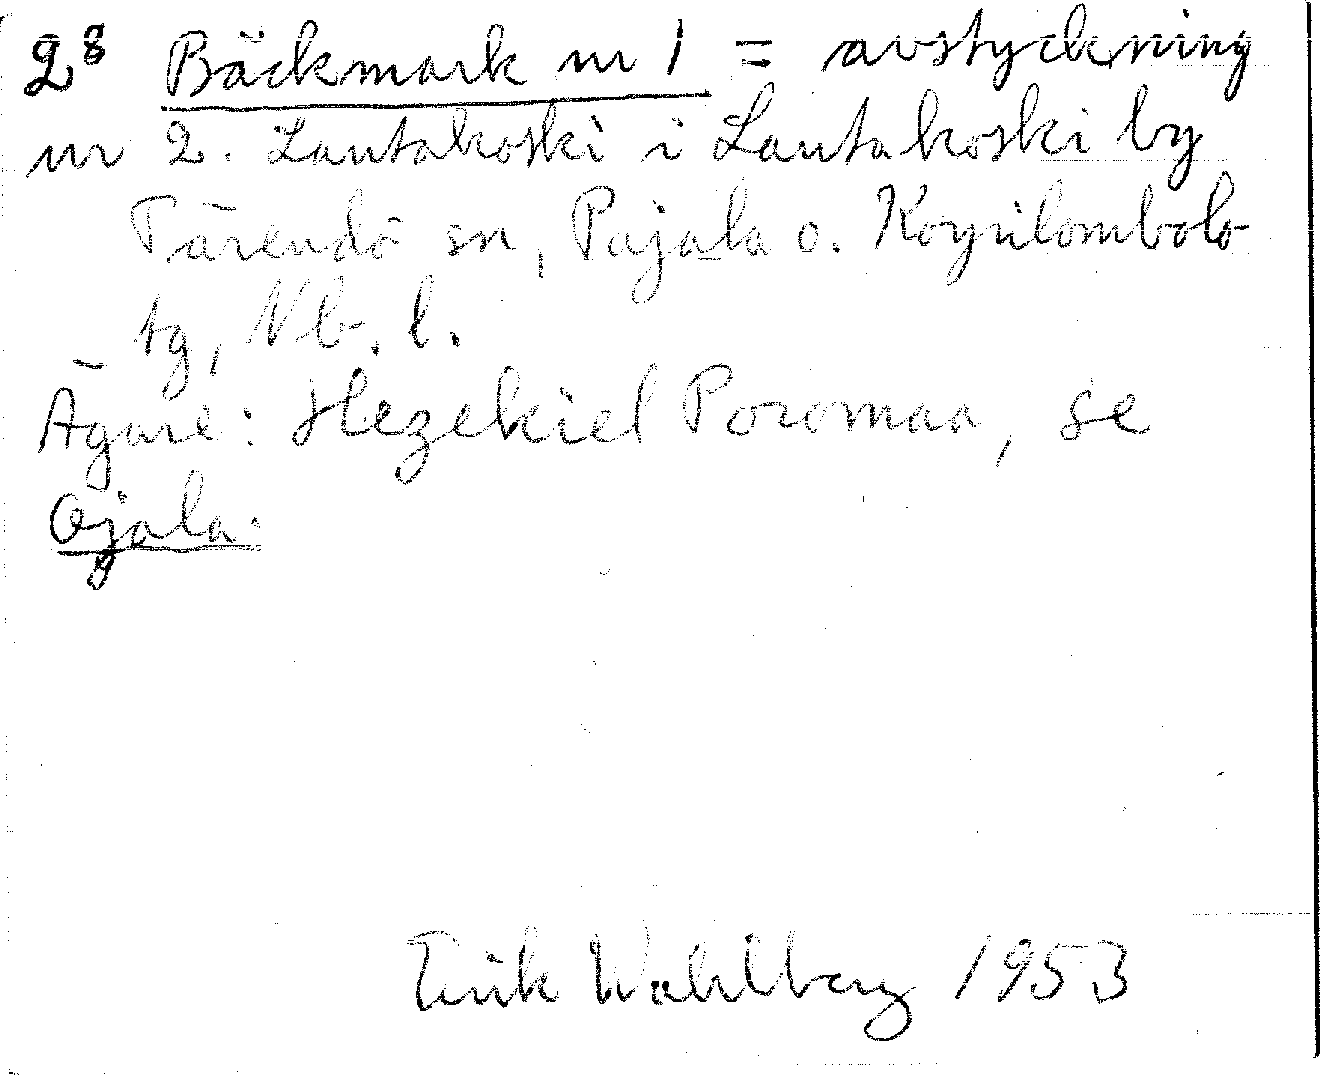 2⁸ Bäckmark nr 1 = avstyckning
nr 2. Lautakoski i Lautakoski by
Tärendö sn, Pajala o. Korpilombolo
tg, Nb. l.
Ägare: Hezekiel Poromaa, se
Ojala.
Erik Wahlberg 1953